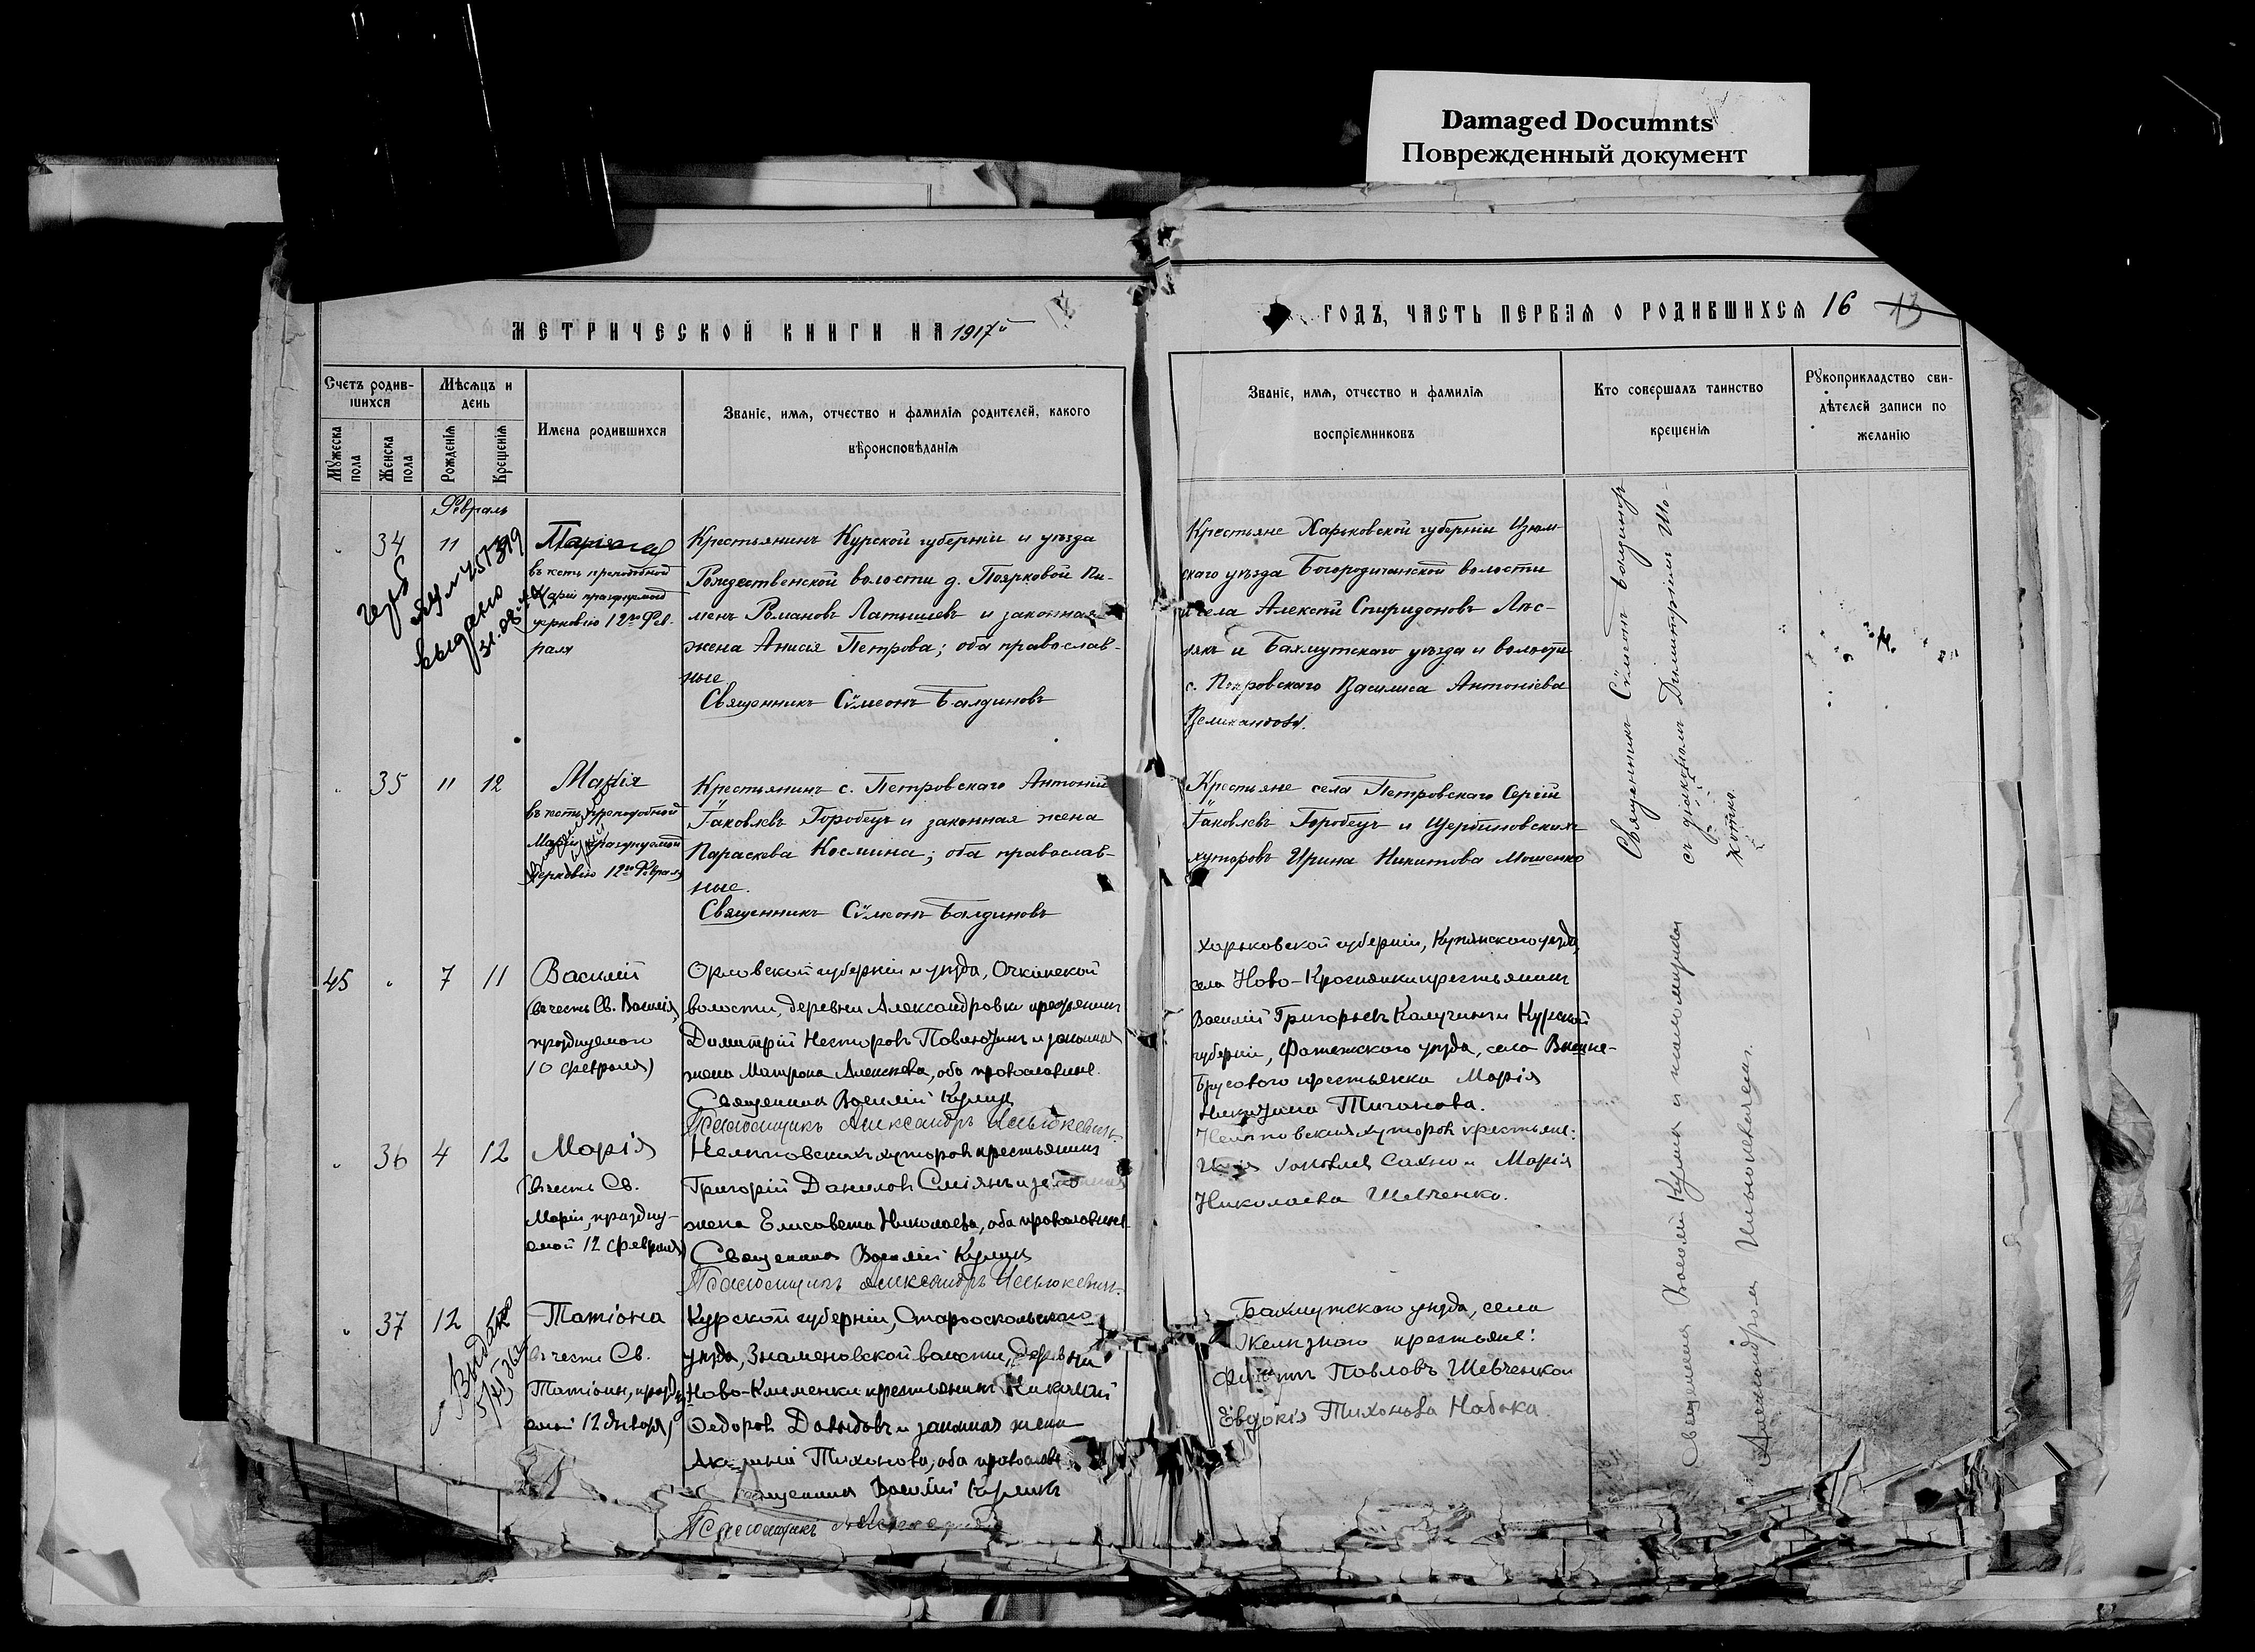 Damaged Documnts
Поврежденный документ
МЕТРИЧЕСКОЙ КНИГИ НА 1917й
ГОДЪ, ЧАСТЬ ПЕРВАЯ О РОДИВШИХСЯ 16 13
Счетъ родив-
шихся
Мѣсяцъ и
день
Мужеска
пола
Женска
пола
Рожденія
Крещенія
Имена родившихся
Званіе, имя, отчество и фамилія родителей, какого
вѣроисповѣданія
Званіе, имя, отчество и фамилія
воспріемниковъ
Кто совершалъ таинство
крещенія
Рукоприкладство сви-
дѣтелей записи по
желанію
Февраль
34 11
въ честь преподобной
Маріи празднуемой
церковію 12го Фев-
раля
выдано
31.08
Крестьянинъ Курской губерніи и уѣзда
Рождественской волости д. Поярковой Пи-
менъ Романовъ Латышевъ и законная
жена Анисія Петрова; оба православ-
ные
Священникъ Сѵмеонъ Балдиновъ
Крестьяне Харьковской губерніи Изюм-
скаго уѣзда Богородичанской волости
и села Алексѣй Спиридоновъ Лѣс-
някъ и Бахмутскаго уѣзда и волости
с. Покровскаго Василиса Антоніева
35 11 12
Марія
въ честь преподобной
Маріи празднуемой
церковію 12го Февраля
Крестьянинъ с. Петровскаго Антоній
Іаковлевъ Горобецъ и законная жена
Параскева Космина; оба православ-
ные.
Священникъ Сѵмеонъ Балдиновъ
Крестьяне села Петровскаго Сергій
Іаковлевъ Горобецъ и Щербиновскихъ
хуторовъ Ирина Никитова Мошенко
Священникъ Сѵмеонъ Балдиновъ
съ діакономъ Димитріемъ
45 7 11
Василій
(въ честь Св. Василія,
празднуемаго
10 февраля)
Орловской губерніи и уѣзда,
волости, деревни Александровки крестьянинъ
Димитрій Несторовъ и законная
жена Матрона Алексѣева, оба православные.
Священникъ Василій Куликъ
Псаломщикъ Александръ
Харьковской губерніи, Купянскаго уѣзда,
села Ново- крестьянинъ
Василій Григорьевъ Калугинъ и Курской
губерніи, Фатежскаго уѣзда, села
крестьянка Марія
36 4 12
Марія
(въ честь Св.
Маріи, праздну-
емой 12 февраля)
Нелѣповскихъ хуторовъ крестьянинъ
Григорій Даниловъ Сміянъ и законная
жена Елисавета Николаева, оба православные
Священникъ Василій Куликъ
Псаломщикъ Александръ
Нелѣповскихъ хуторовъ крестьяне:
Сахно и Марія
Николаева Шевченко.
37 12
Татіана
(въ честь Св.
Татіаны, праздну-
емой 12 января)
Курской губерніи, Старооскольскаго
уѣзда, Знаменовской волости, деревни
Ново-Клименки крестьянинъ Николай
Ѳедоровъ Давыдовъ и законная жена
Тихонова, оба православ
Священникъ Василій Куликъ
Псаломщикъ
Бахмутскаго уѣзда, села
Желѣзнаго крестьяне:
Павловъ Шевченко и
Евдокія Тихонова Набока
Священникъ Василій Куликъ и псаломщикъ